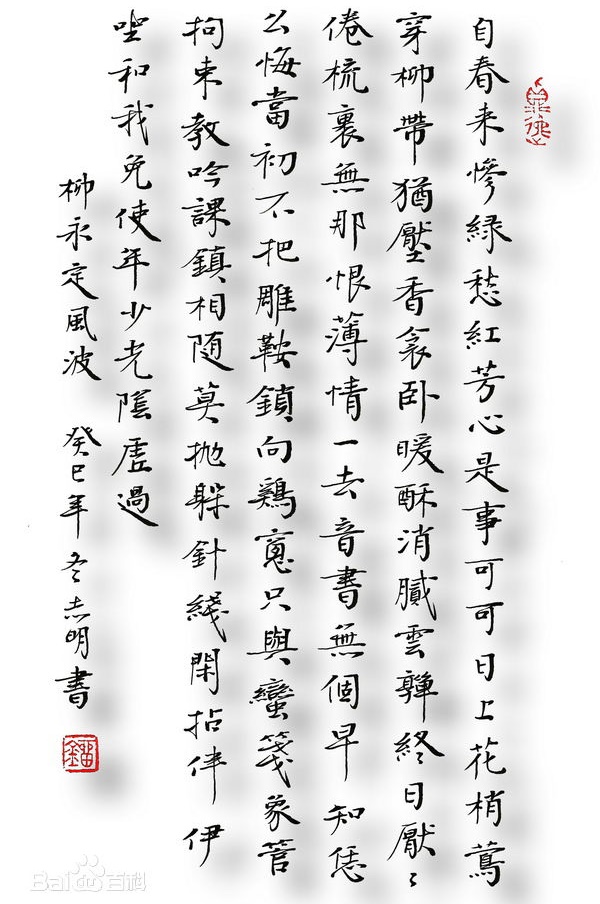 自春来慘緑愁紅芳心是事可可日上花梢鶯
穿柳帶猶壓香衾卧暖酥消膩雲亸終日厭〻
倦梳裹無那恨薄情一去音書無個早知恁
么悔當初不把雕鞍鎖向鷄窻只與蠻箋象管
拘束教吟課鎮相随莫抛躲針綫閑拈伴伊
坐和我免使年少光陰虛過
柳永定風波 癸巳年冬志明書
Bai百科